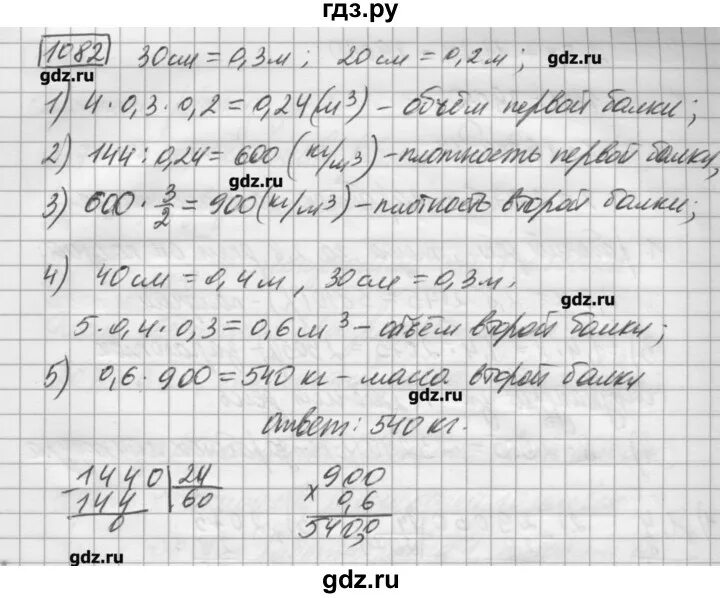 гдз.ру
1082 30см = 0,3м ; 20см = 0,2м ; gdz.ru
gdz.ru
1) 4 · 0,3 · 0,2 = 0,24 (м³) – объём первой балки ;
2) 144 : 0,24 = 600 (кг/м³) – плотность первой балки,
gdz.ru
3) 600 · 3/2 = 900 (кг/м³) – плотность второй балки ;
4) 40см = 0,4м , 30см = 0,3м.
gdz.ru
5 · 0,4 · 0,3 = 0,6 м³ – объём второй балки ;
5) 0,6 · 900 = 540 кг – масса второй балки
gdz.ru
Ответ : 540 кг.
1440 24 900
144 60 × 0,6
0 540,0
gdz.ru
gdz.ru